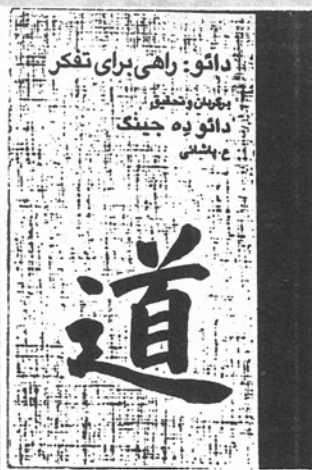 دائو: راهی برای تفکر
برگردان و تحقیق
دائو دِه جینگ
ع. پاشائی
道